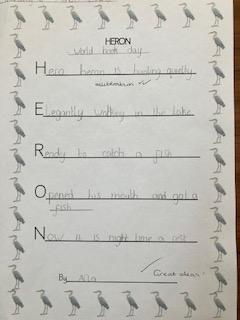 HERON
World book day
Hero heron is hunting quietly
alliteration ✓
Elegantly walking in the lake
Ready to catch a fish
Opened his mouth and got a
fish
Now it is night time a rest
By
Great ideas!